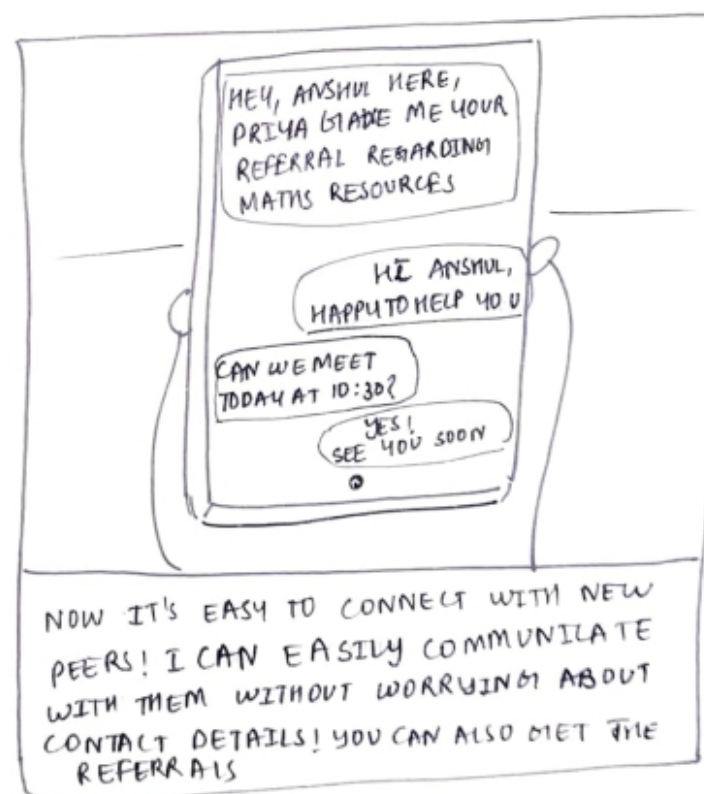 HEY, ANSHUL HERE,
PRIYA GAVE ME YOUR
REFERRAL REGARDING
MATHS RESOURCES
HI ANSHUL,
HAPPY TO HELP YOU
CAN WE MEET
TODAY AT 10:30?
YES!
SEE YOU SOON
NOW IT'S EASY TO CONNECT WITH NEW
PEERS! I CAN EASILY COMMUNICATE
WITH THEM WITHOUT WORRYING ABOUT
CONTACT DETAILS! YOU CAN ALSO GET THE
REFERRALS